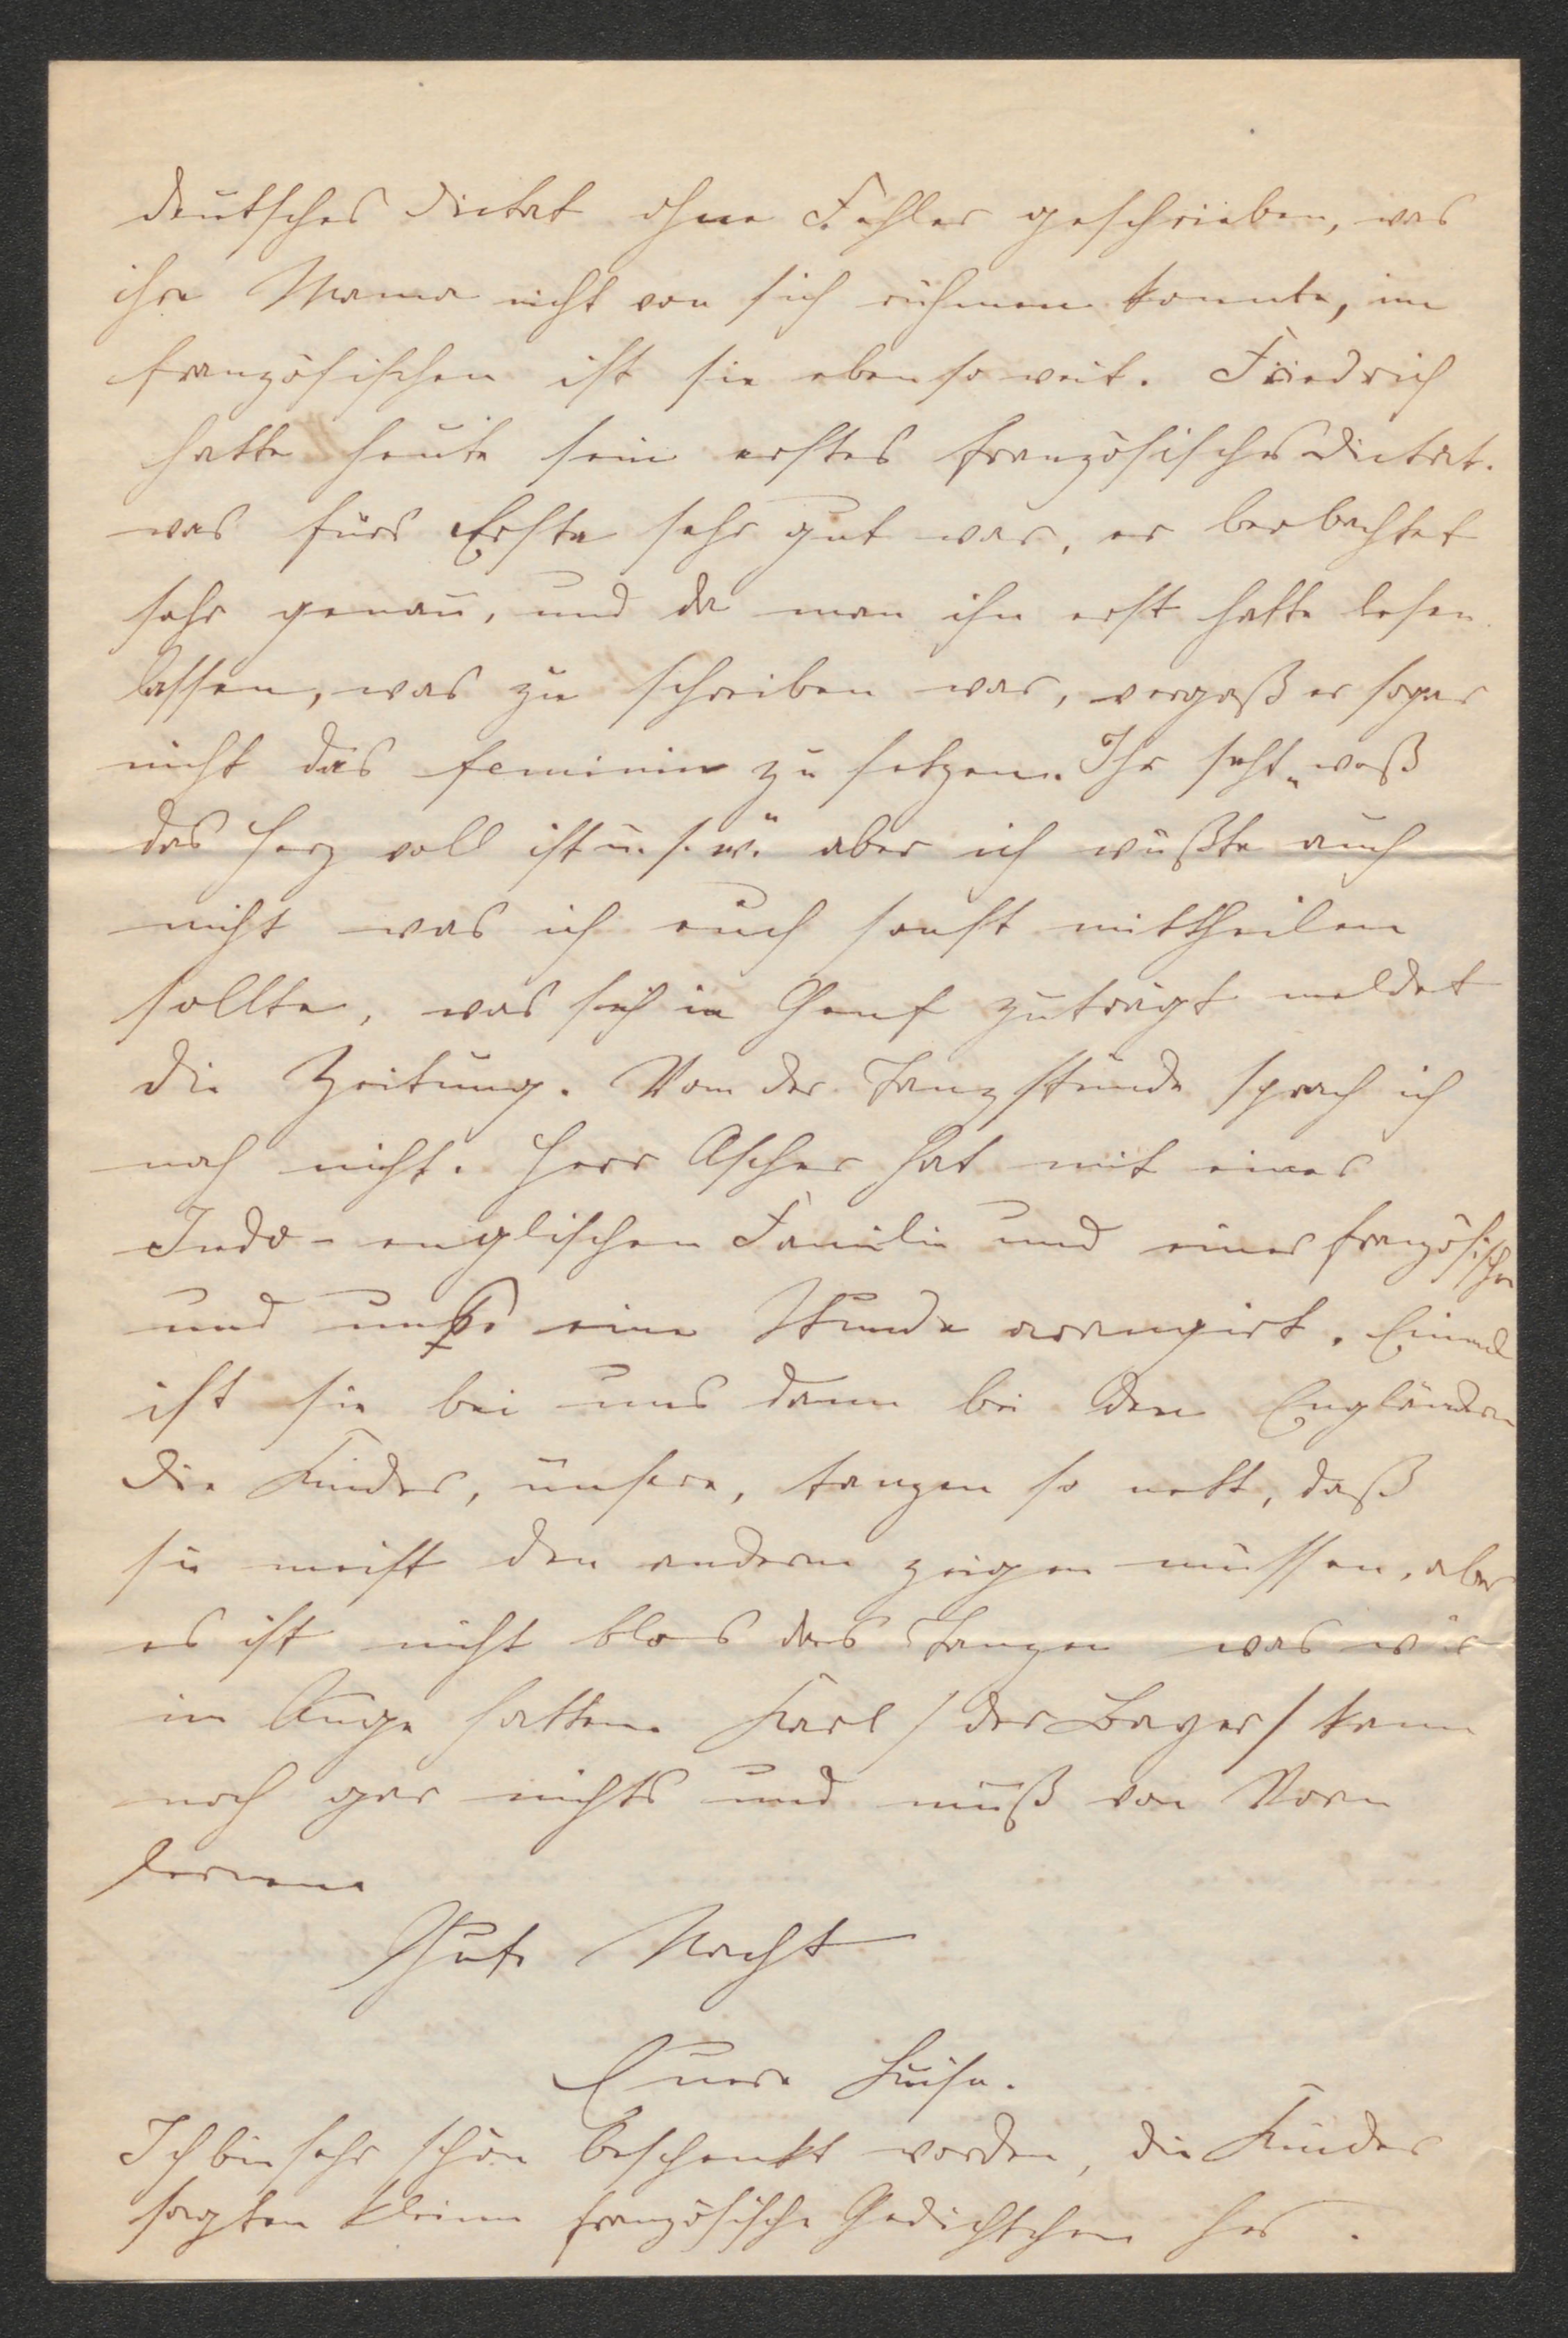 deutsches Dictat ohne Fehler geschrieben, was
ihre Mama nicht von sich rühmen konnte, im
französischen ist sie ebenso weit. Friedrich
hatte heute sein erstes französisches Dictat.
was fürs Erste sehr gut war, er beobachtet
sehr genau, und da man ihn erst hatte lesen
lassen, was zu schreiben war, vergaß er sogar
nicht das feminin zu setzen. Ihr seht „weß
das Herz voll ist u. s. w." aber ich wüßte auch
nicht was ich euch sonst mittheilen
sollte, was sich in Genf zuträgt meldet
die Zeitung. Von der Tanzstunde sprach ich
noch nicht. Herr Ascher hat mit einer
Indo-englischen Familie und einer französischen
und uns eine Stunde arrangirt. Einmal
ist sie bei uns dann bei den Engländern
die Kinder, unsere, tanzen so nett, daß
sie meist den andern zeigen müssen, aber
es ist nicht blos das Tanzen was wir
im Auge hatten. Karl / der Bayer / kann
noch gar nichts und muß von Vorn
lernen.
Gute Nacht
Euere Luise.
Ich bin sehr schön beschenkt worden, die Kinder
sagten kleine französische Gedichtchen her.